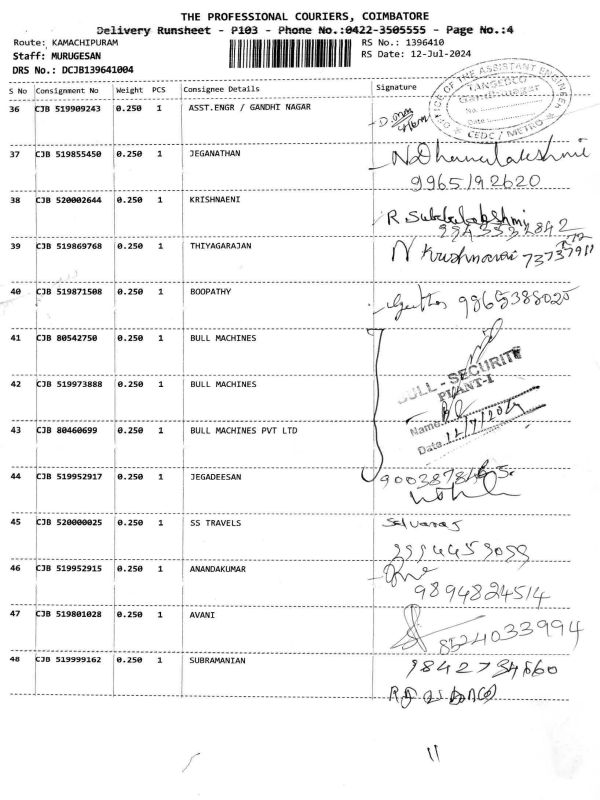 THE PROFESSIONAL COURIERS, COIMBATORE
Delivery Runsheet - P103 - Phone No.:0422-3505555 - Page No.:4
Route: KAMACHIPURAM
RS No.: 1396410
Staff: MURUGESAN
RS Date: 12-Jul-2024
DRS No.: DCJB139641004
OFFICE OF THE ASSISTANT ENGINEER
TANGEDCO
Date
CEDC / METRO
S No Consignment No Weight PCS Consignee Details Signature
36 CJB 519909243 0.250 1 ASST.ENGR / GANDHI NAGAR
37 CJB 519855450 0.250 1 JEGANATHAN N. Dhanalakshmi
9965192620
38 CJB 520002644 0.250 1 KRISHNAENI
R Subbulakshmi
39 CJB 519869768 0.250 1 THIYAGARAJAN
40 CJB 519871508 0.250 1 BOOPATHY 9865388025
41 CJB 80542750 0.250 1 BULL MACHINES
BULL - SECURITY
PLANT-I
42 CJB 519973888 0.250 1 BULL MACHINES
Name
Date 12/7/2024
43 CJB 80460699 0.250 1 BULL MACHINES PVT LTD
44 CJB 519952917 0.250 1 JEGADEESAN
45 CJB 520000025 0.250 1 SS TRAVELS Selvaraj
9994459099
46 CJB 519952915 0.250 1 ANANDAKUMAR
9894824514
47 CJB 519801028 0.250 1 AVANI
8524033994
48 CJB 519999162 0.250 1 SUBRAMANIAN